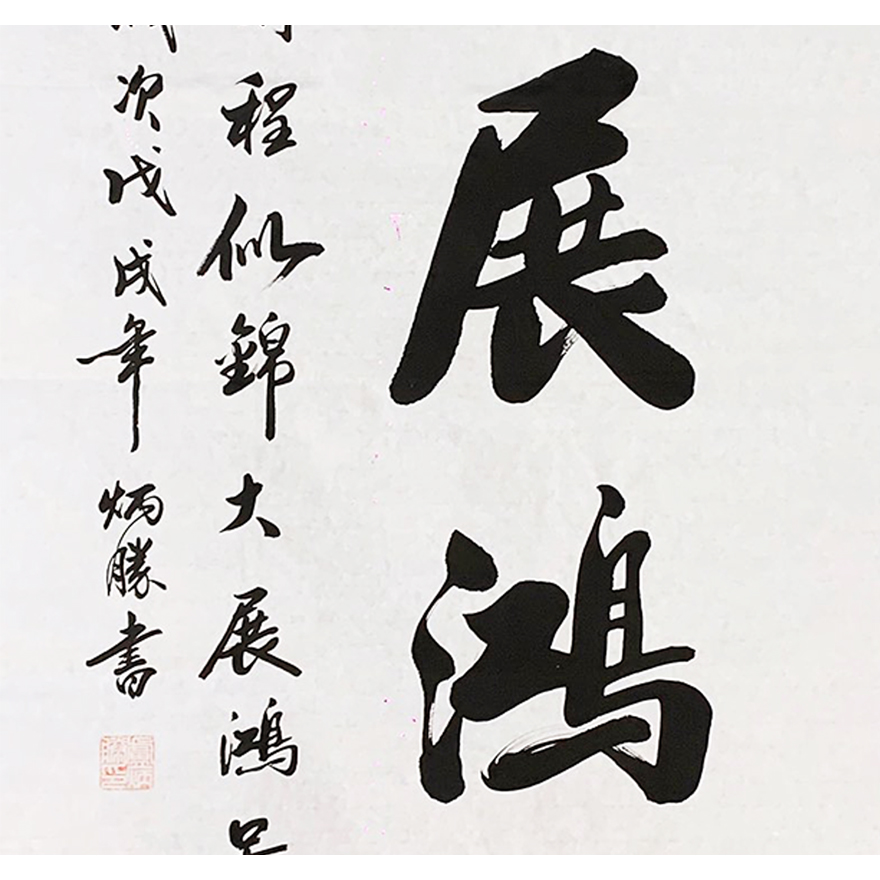 展鴻
程似錦大展鴻
次戊戌年炳勝書